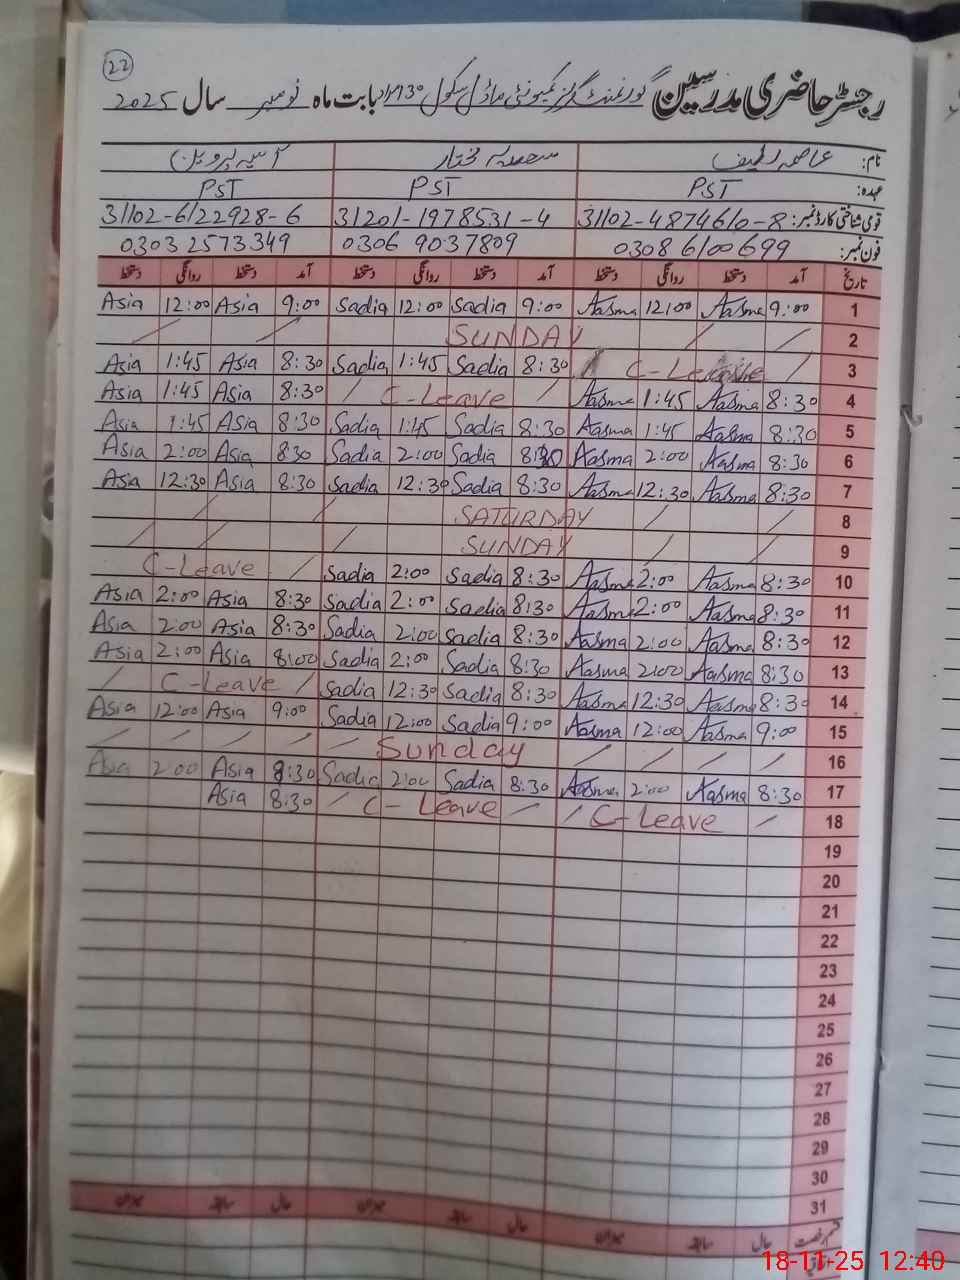 22
رجسٹر حاضری مدرسین گورنمنٹ گرلز کمیونٹی ماڈل سکول بابت ماہ نومبر سال 2025
نام: عاصمہ لطیف سعدیہ مختار آسیہ پروین
عہدہ: PST PST PST
قومی شناختی کارڈ نمبر: 31102-4874610-8 31201-1978531-4 31102-6122928-6
فون نمبر: 0308 6100699 0306 9037809 0303 2573349
تاریخ آمد دستخط روانگی دستخط آمد دستخط روانگی دستخط آمد دستخط روانگی دستخط
Asia 12:00 Asia 9:00 Sadia 12:00 Sadia 9:00 Aasma 12:00 Aasma 9:00 1
/ / SUNDAY / / 2
Asia 1:45 Asia 8:30 Sadia 1:45 Sadia 8:30 C-Leave / 3
Asia 1:45 Asia 8:30 / C-Leave / Aasma 1:45 Aasma 8:30 4
Asia 1:45 Asia 8:30 Sadia 1:45 Sadia 8:30 Aasma 1:45 Aasma 8:30 5
Asia 2:00 Asia 8:30 Sadia 2:00 Sadia 8:30 Aasma 2:00 Aasma 8:30 6
Asia 12:30 Asia 8:30 Sadia 12:30 Sadia 8:30 Aasma 12:30 Aasma 8:30 7
/ / SATURDAY / / 8
/ / / SUNDAY / / 9
C-Leave / Sadia 2:00 Sadia 8:30 Aasma 2:00 Aasma 8:30 10
Asia 2:00 Asia 8:30 Sadia 2:00 Sadia 8:30 Aasma 2:00 Aasma 8:30 11
Asia 2:00 Asia 8:30 Sadia 2:00 Sadia 8:30 Aasma 2:00 Aasma 8:30 12
Asia 2:00 Asia 8:00 Sadia 2:00 Sadia 8:30 Aasma 2:00 Aasma 8:30 13
/ C-Leave / Sadia 12:30 Sadia 8:30 Aasma 12:30 Aasma 8:30 14
Asia 12:00 Asia 9:00 Sadia 12:00 Sadia 9:00 Aasma 12:00 Aasma 9:00 15
/ / / / / Sunday / / / / 16
Asia 2:00 Asia 8:30 Sadia 2:00 Sadia 8:30 Aasma 2:00 Aasma 8:30 17
Asia 8:30 / C-Leave / / C-Leave / 18
19
20
21
22
23
24
25
26
27
28
29
30
31
قسم رخصت حال سابقہ میزان حال سابقہ میزان حال سابقہ میزان
18-11-25 12:40